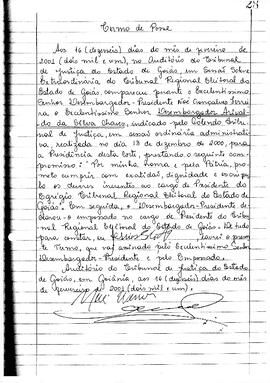 Termo de Posse
Aos 16 (dezesseis) dias do mês de fevereiro de
2001 (dois mil e um), no Auditório do Tribunal
de Justiça do Estado de Goiás, em Sessão
Extraordinária do Tribunal Regional Eleitoral do
Estado de Goiás, compareceu perante o Excelentíssimo
Senhor Desembargador-Presidente Noé Gonçalves Ferrei-
ra o Excelentíssimo Senhor Desembargador
da Silva Chaves, indicado pelo Colendo Tribu-
nal de Justiça, em sessão ordinária administrati-
va, realizada no dia 13 de dezembro de 2000, para
a Presidência desta Corte, prestando o seguinte com-
promisso: "Por minha honra e pela Pátria, pro-
meto cumprir com exatidão, dignidade e escrúpu-
lo os deveres inerentes ao cargo de Presidente do
Egrégio Tribunal Regional Eleitoral do Estado de
Goiás". Em seguida, o Desembargador-Presidente de-
clarou-o empossado no cargo de Presidente do Tribu-
nal Regional Eleitoral do Estado de Goiás. De tudo
para constar, eu lavrei o presen-
te Termo, que vai assinado pelo Excelentíssimo Senhor
Desembargador-Presidente e pelo Empossado.
Auditório do Tribunal de Justiça do Estado
de Goiás, em Goiânia, aos 16 (dezesseis) dias do mês
de fevereiro de 2001 (dois mil e um).